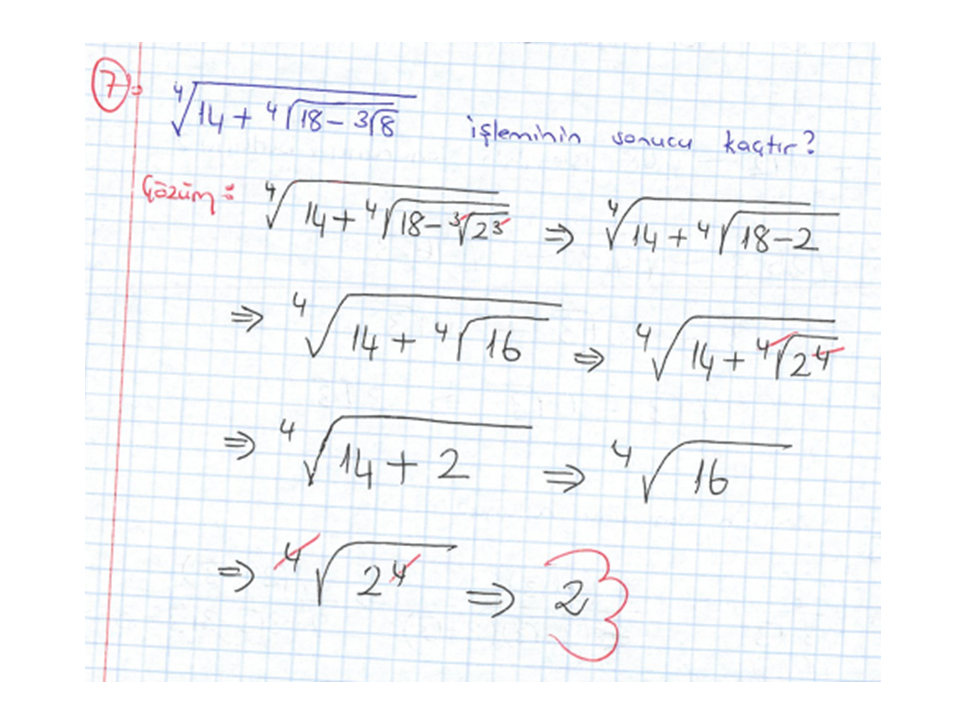 7: ⁴√(14 + ⁴√(18 - ³√8)) işleminin sonucu kaçtır?
Çözüm: ⁴√(14 + ⁴√(18 - ³√2³)) ⇒ ⁴√(14 + ⁴√(18 - 2))
⇒ ⁴√(14 + ⁴√16) ⇒ ⁴√(14 + ⁴√2⁴)
⇒ ⁴√(14 + 2) ⇒ ⁴√16
⇒ ⁴√2⁴ ⇒ 2